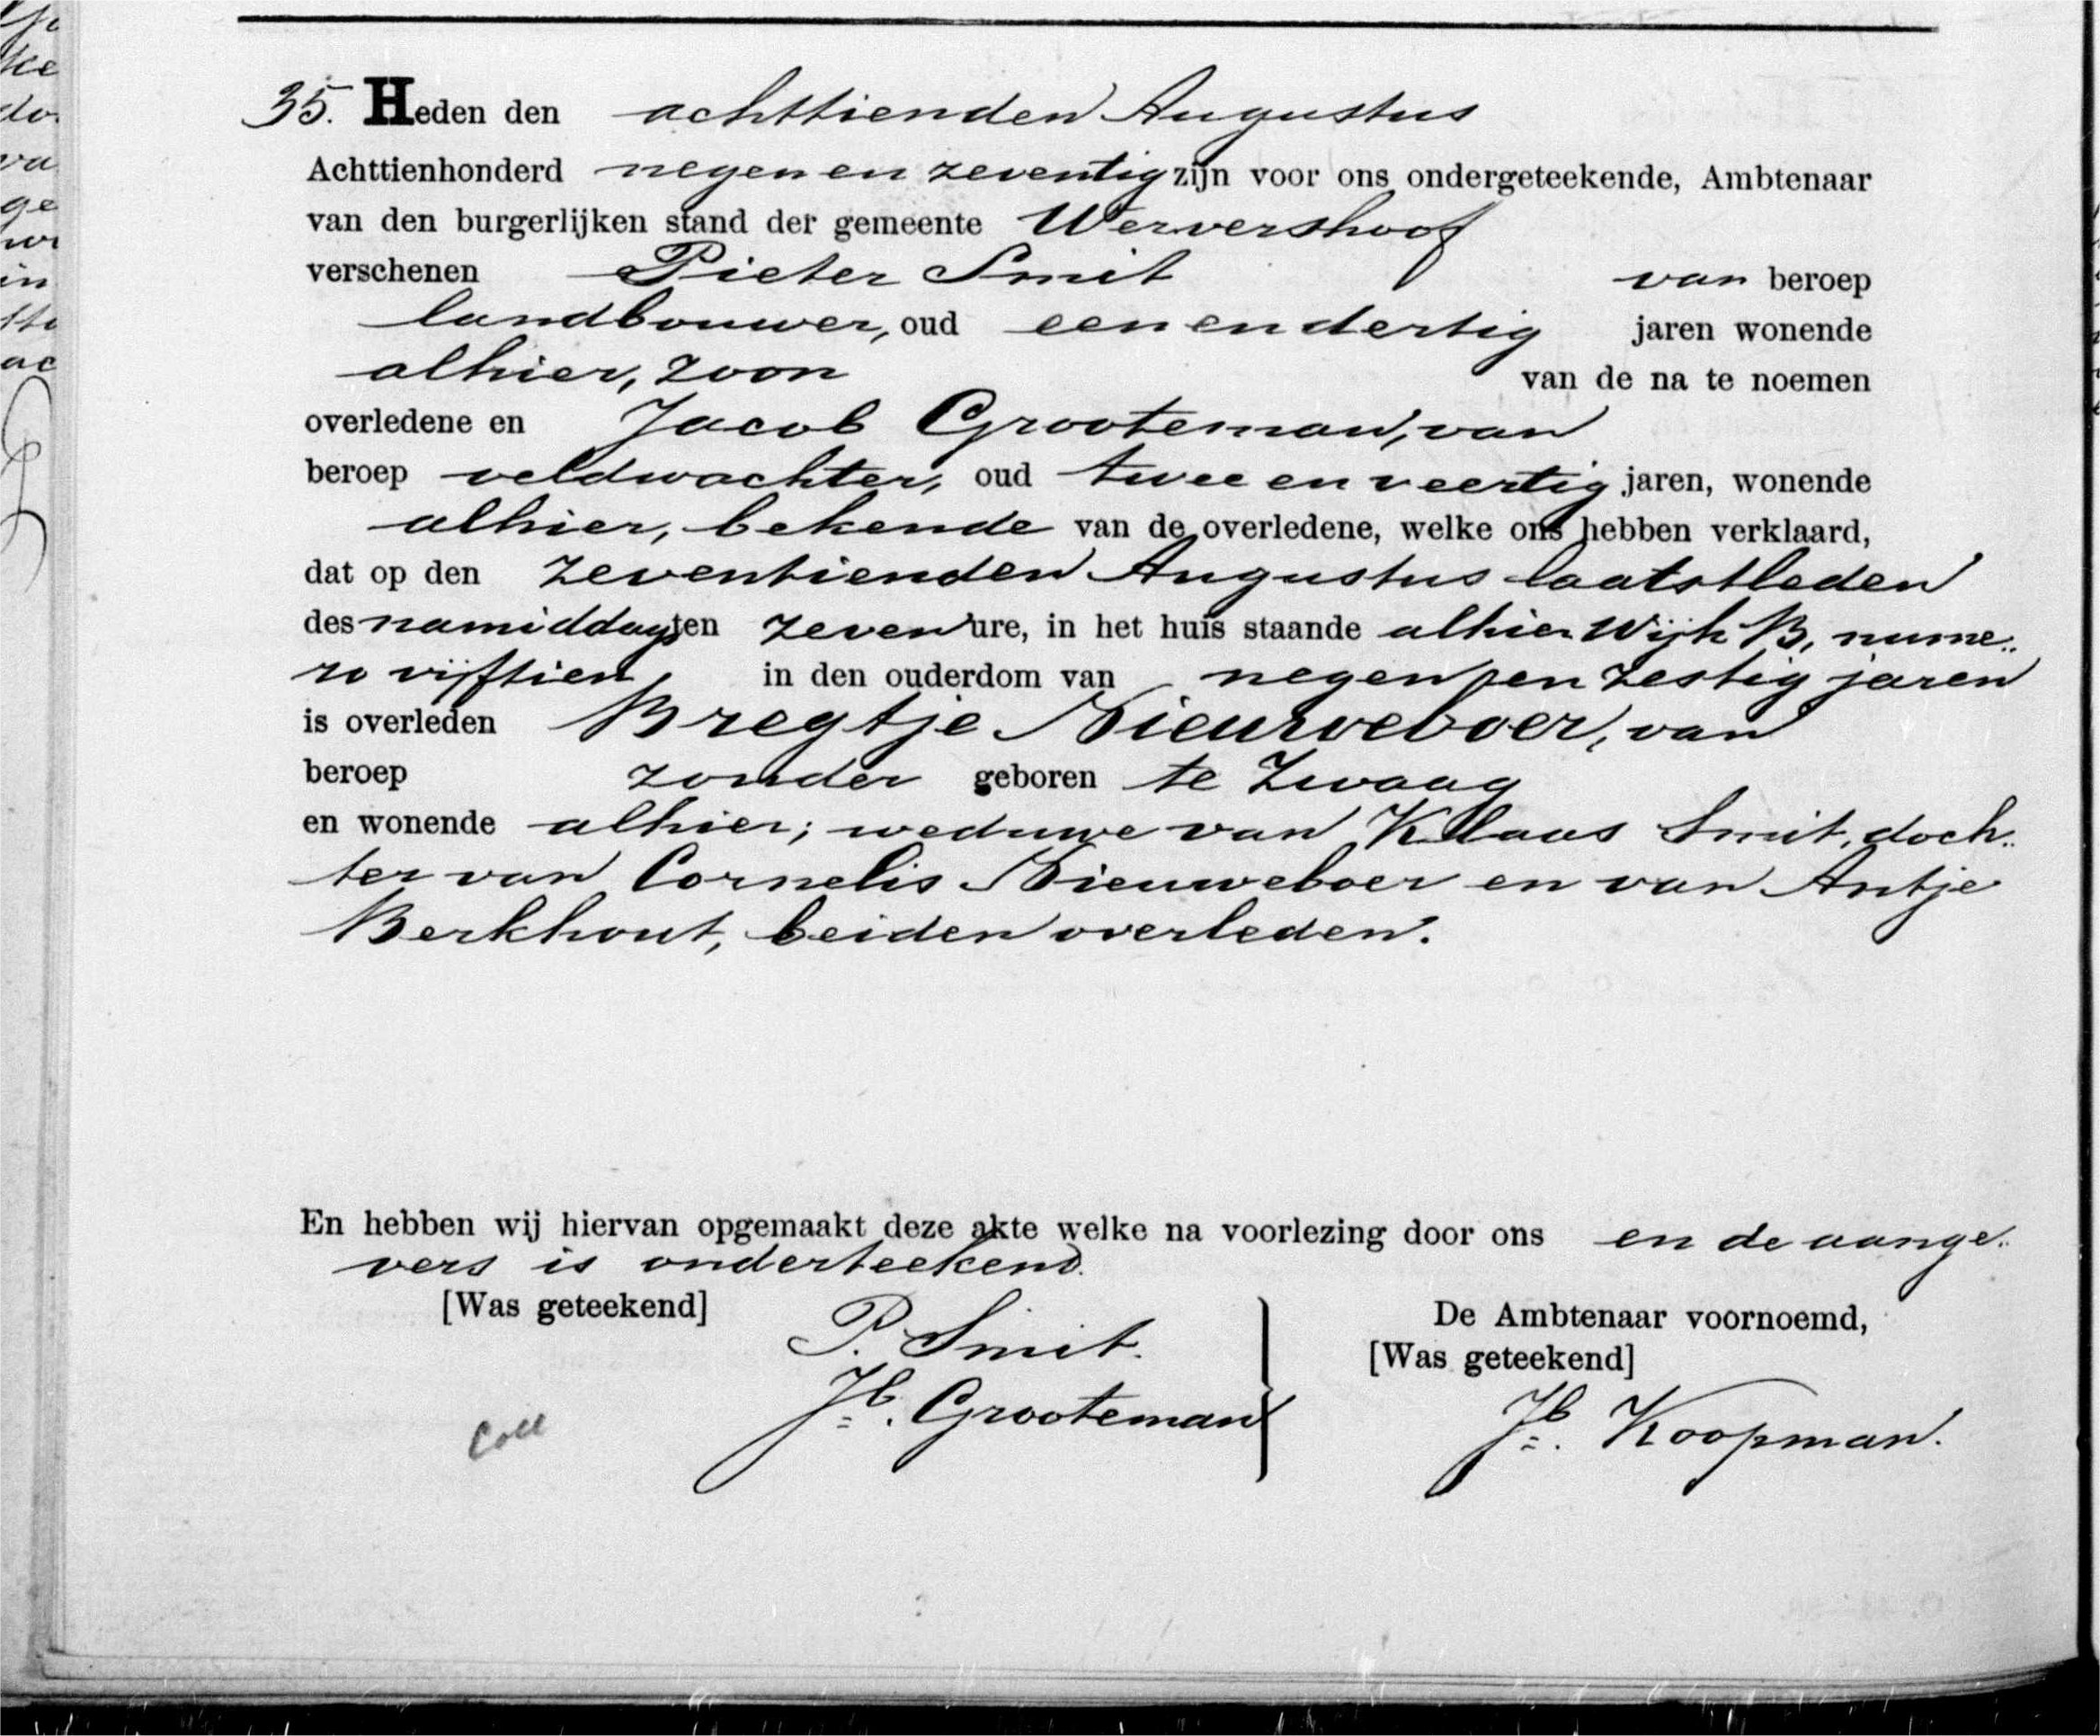 35. Heden den achttienden Augustus
Achttienhonderd negen en zeventig zijn voor ons ondergeteekende, Ambtenaar
van den burgerlijken stand der gemeente Wervershoof
verschenen Pieter Smit van beroep
landbouwer, oud een en dertig jaren wonende
alhier, zoon van de na te noemen
overledene en Jacob Grooteman, van
beroep veldwachter, oud twee en veertig jaren, wonende
alhier, bekende van de overledene, welke ons hebben verklaard,
dat op den zeventienden Augustus laatstleden
des namiddags ten zeven ure, in het huis staande alhier Wijk B, nume..
ro vijftien, in den ouderdom van negen en zestig jaren
is overleden Bregtje Nieuweboer, van
beroep zonder geboren te Zwaag
en wonende alhier; weduwe van Klaas Smit, doch..
ter van Cornelis Nieuweboer en van Antje
Berkhout, beiden overleden.
En hebben wij hiervan opgemaakt deze akte welke na voorlezing door ons en de aange..
vers is onderteekend.
[Was geteekend]
P. Smit.
Jb. Grooteman
De Ambtenaar voornoemd,
[Was geteekend]
Jb. Koopman.
Coll